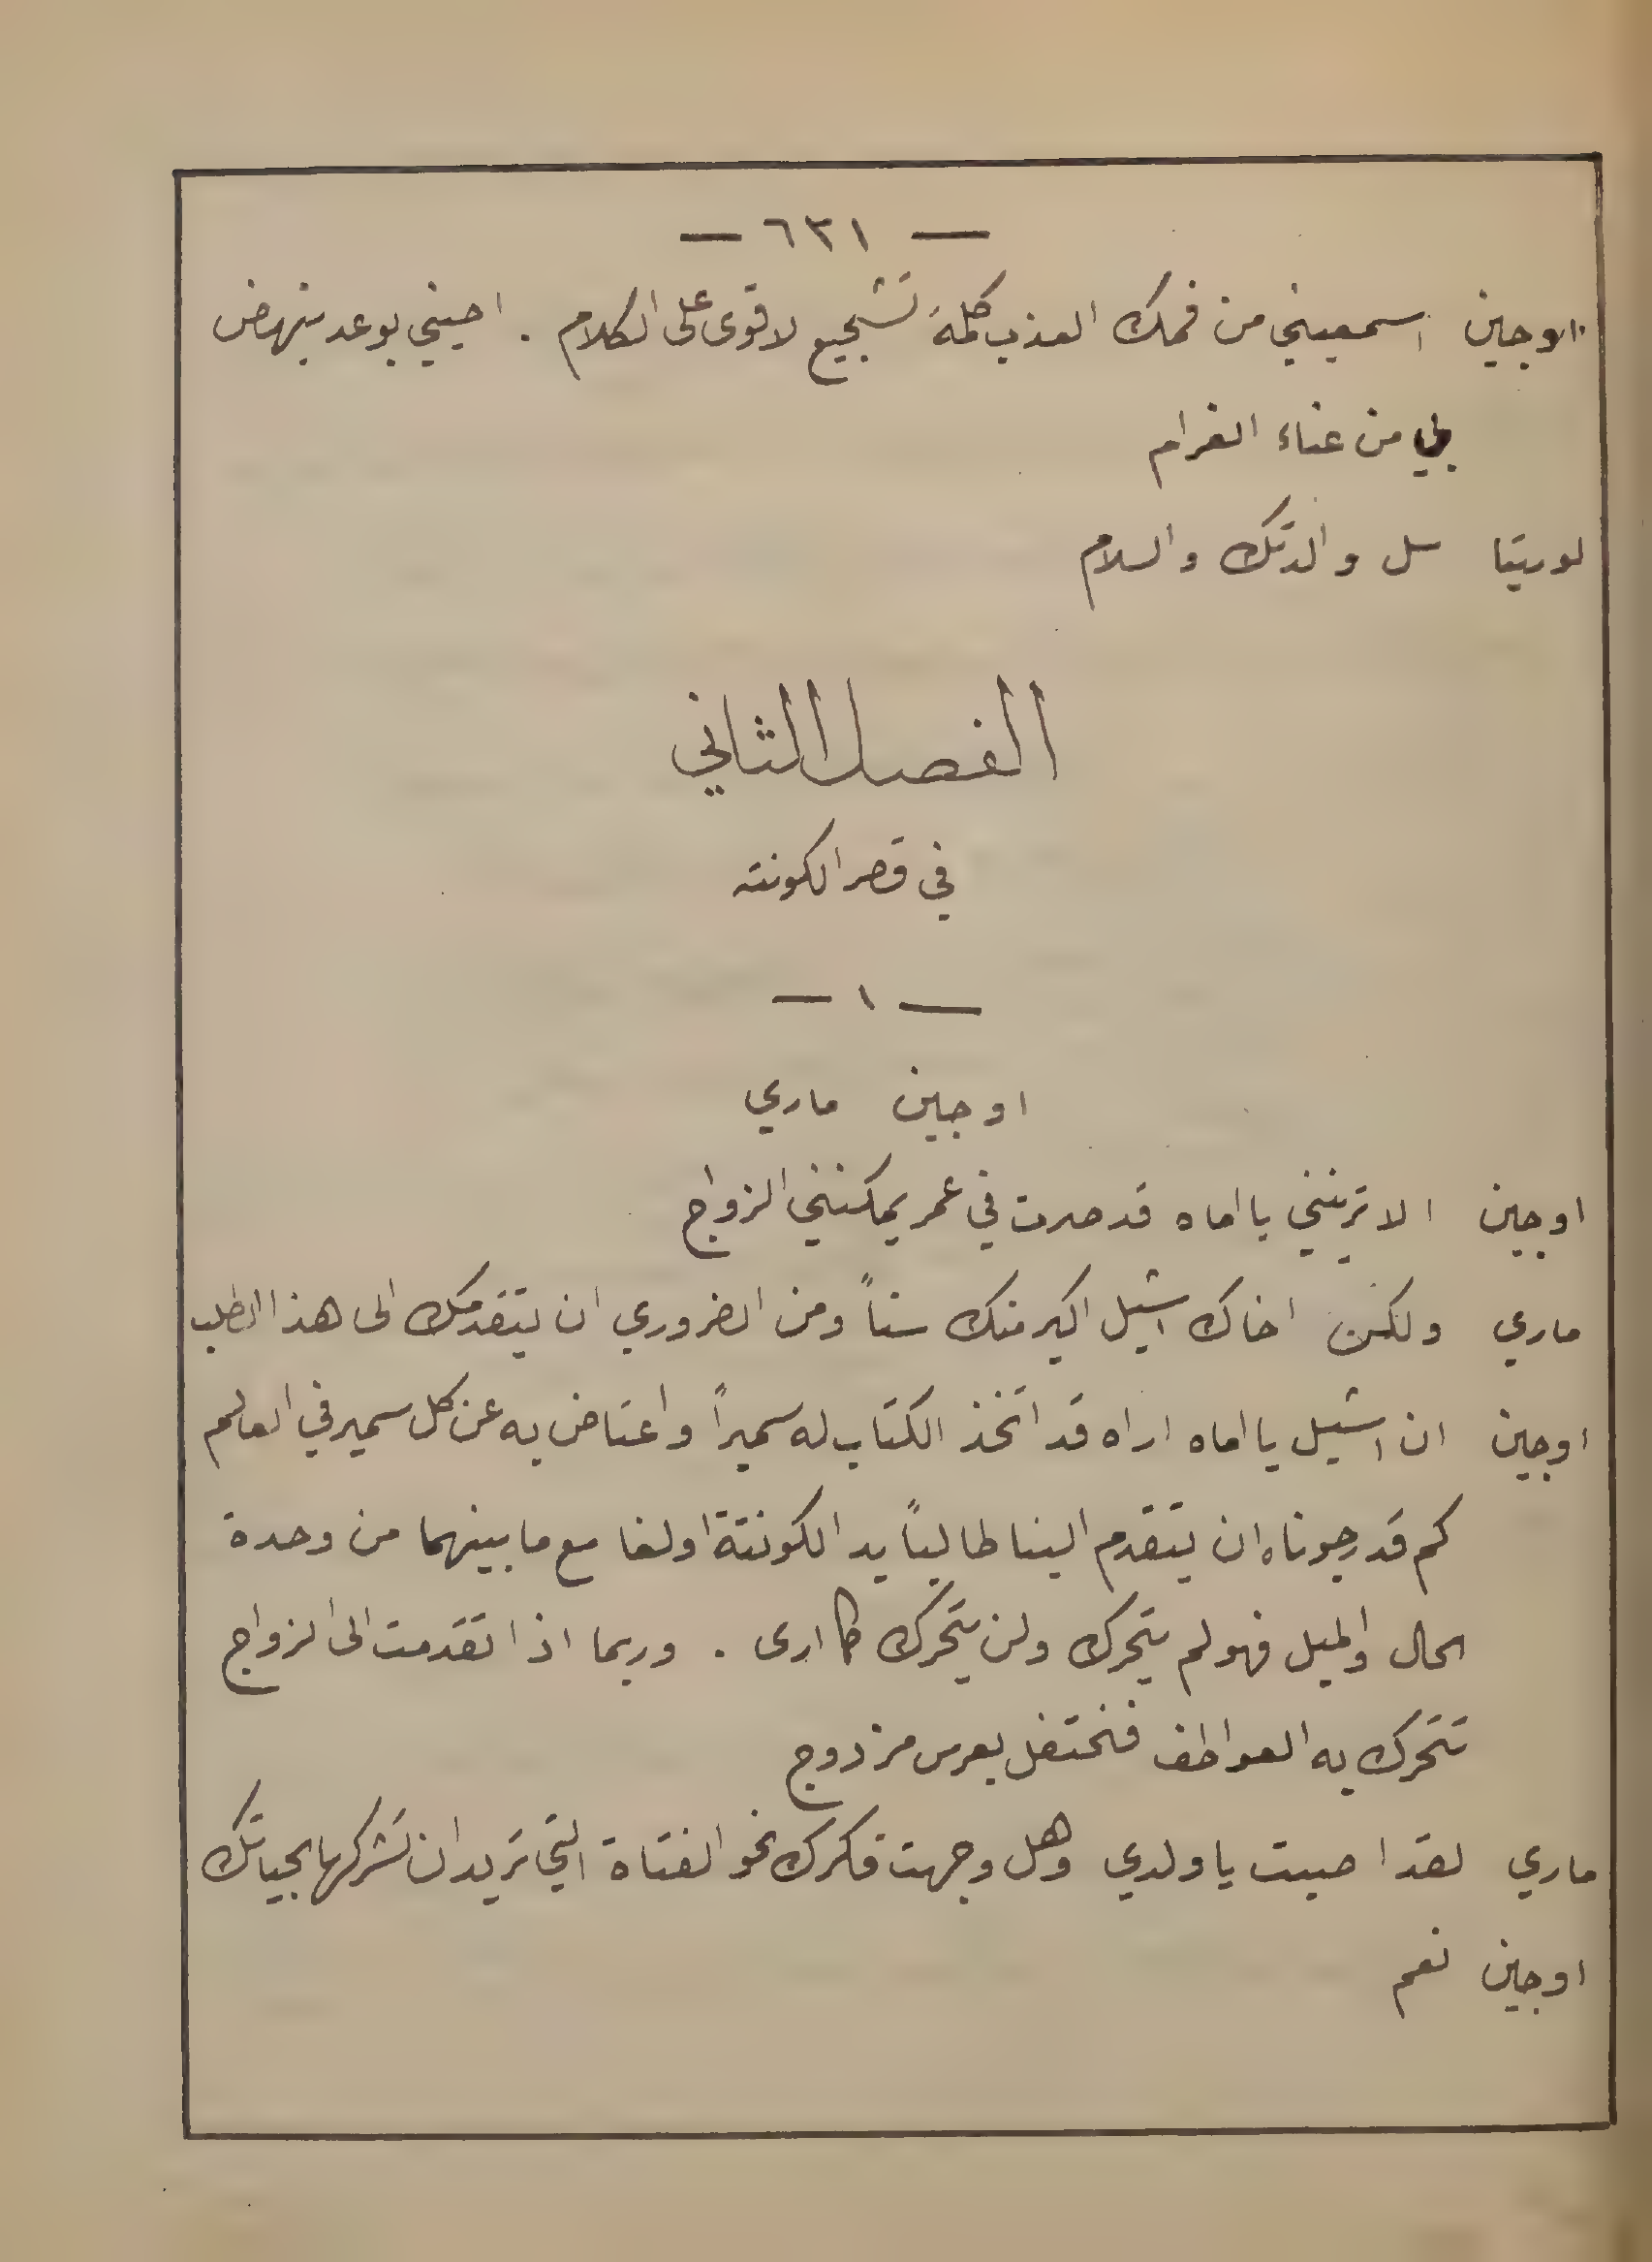 — ٦٣١ —
اوجين اسمعيني من فمك العذب كلمة تشجيع لاقوى على الكلام . احييني بوعد ينهض
بي من عناء الغرام
لوريتا سل والدتك والسلام
الفصل الثاني
في قصر الكونته
— ١ —
اوجين ماري
اوجين الا ترينني يا اماه قد صرت في عمر يمكنني الزواج
ماري ولكن اخاك اشيل اكبر منك سناً ومن الضروري ان يتقدمك الى هذا الطلب
اوجين ان اشيل يا اماه اراه قد اتخذ الكتاب له سميراً واعتاض به عن كل سمير في العالم
كم قد رجوناه ان يتقدم الينا طالباً يد الكونتة اولغا مع ما بينهما من وحدة
الحال والميل فهو لم يتحرك ولن يتحرك كما ارى . وربما اذا تقدمت الى الزواج
تتحرك به العواطف فنحتفل بعرس مزدوج
ماري لقد اصبت يا ولدي وهل وجهت فكرك نحو الفتاة التي تريد ان تشركها بحياتك
اوجين نعم